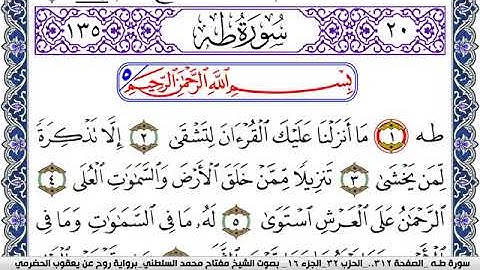 ١٣٥ سُورَةُ طه ٢٠
بِسْمِ اللَّهِ الرَّحْمَٰنِ الرَّحِيمِ ٥
طه ١ مَا أَنزَلْنَا عَلَيْكَ الْقُرْءَانَ لِتَشْقَىٰ ٢ إِلَّا تَذْكِرَةً
لِّمَن يَخْشَىٰ ٣ تَنزِيلًا مِّمَّنْ خَلَقَ الْأَرْضَ وَالسَّمَٰوَٰتِ الْعُلَى ٤
الرَّحْمَٰنُ عَلَى الْعَرْشِ اسْتَوَىٰ ٥ لَهُ مَا فِي السَّمَٰوَٰتِ وَمَا فِي
سورة طـه_ الصفحة ٣١٢_.. الحزب ٣٢_ الجزء ١٦_ بصوت الشيخ مفتاح محمد السلطني_ برواية روح عن يعقوب الحضرمي